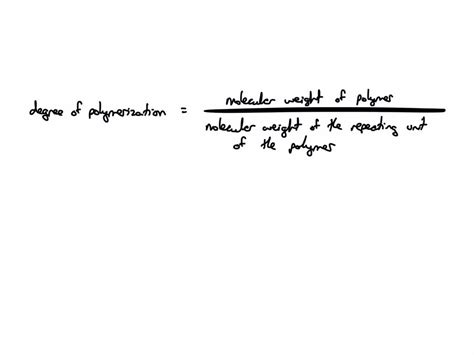 degree of polymerization = molecular weight of polymer
molecular weight of the repeating unit
of the polymer